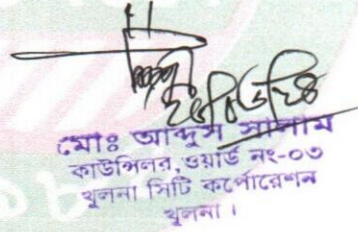 মোঃ আব্দুস সালাম
কাউন্সিলর, ওয়ার্ড নং-০৩
খুলনা সিটি কর্পোরেশন
খুলনা।